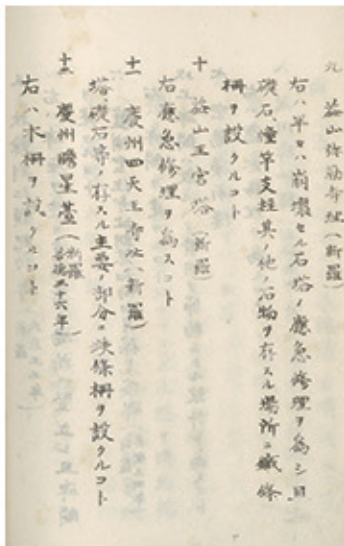 九 益山弥勒寺址（新羅）
右ハ半セハ崩壊セル石塔ノ應急修理ヲ為シ且
礎石、幢竿支柱其ノ他ノ石物ヲ存スル場所ニ鐵條
柵ヲ設クルコト
十 益山王宮塔（新羅）
右應急修理ヲ為スコト
十一 慶州四天王寺址（新羅）
塔、礎石等ノ存スル主要ノ部分ニ鉄條柵ヲ設クルコト
十二 慶州瞻星臺（新羅 善徳王十六年）
右ハ木柵ヲ設クルコト